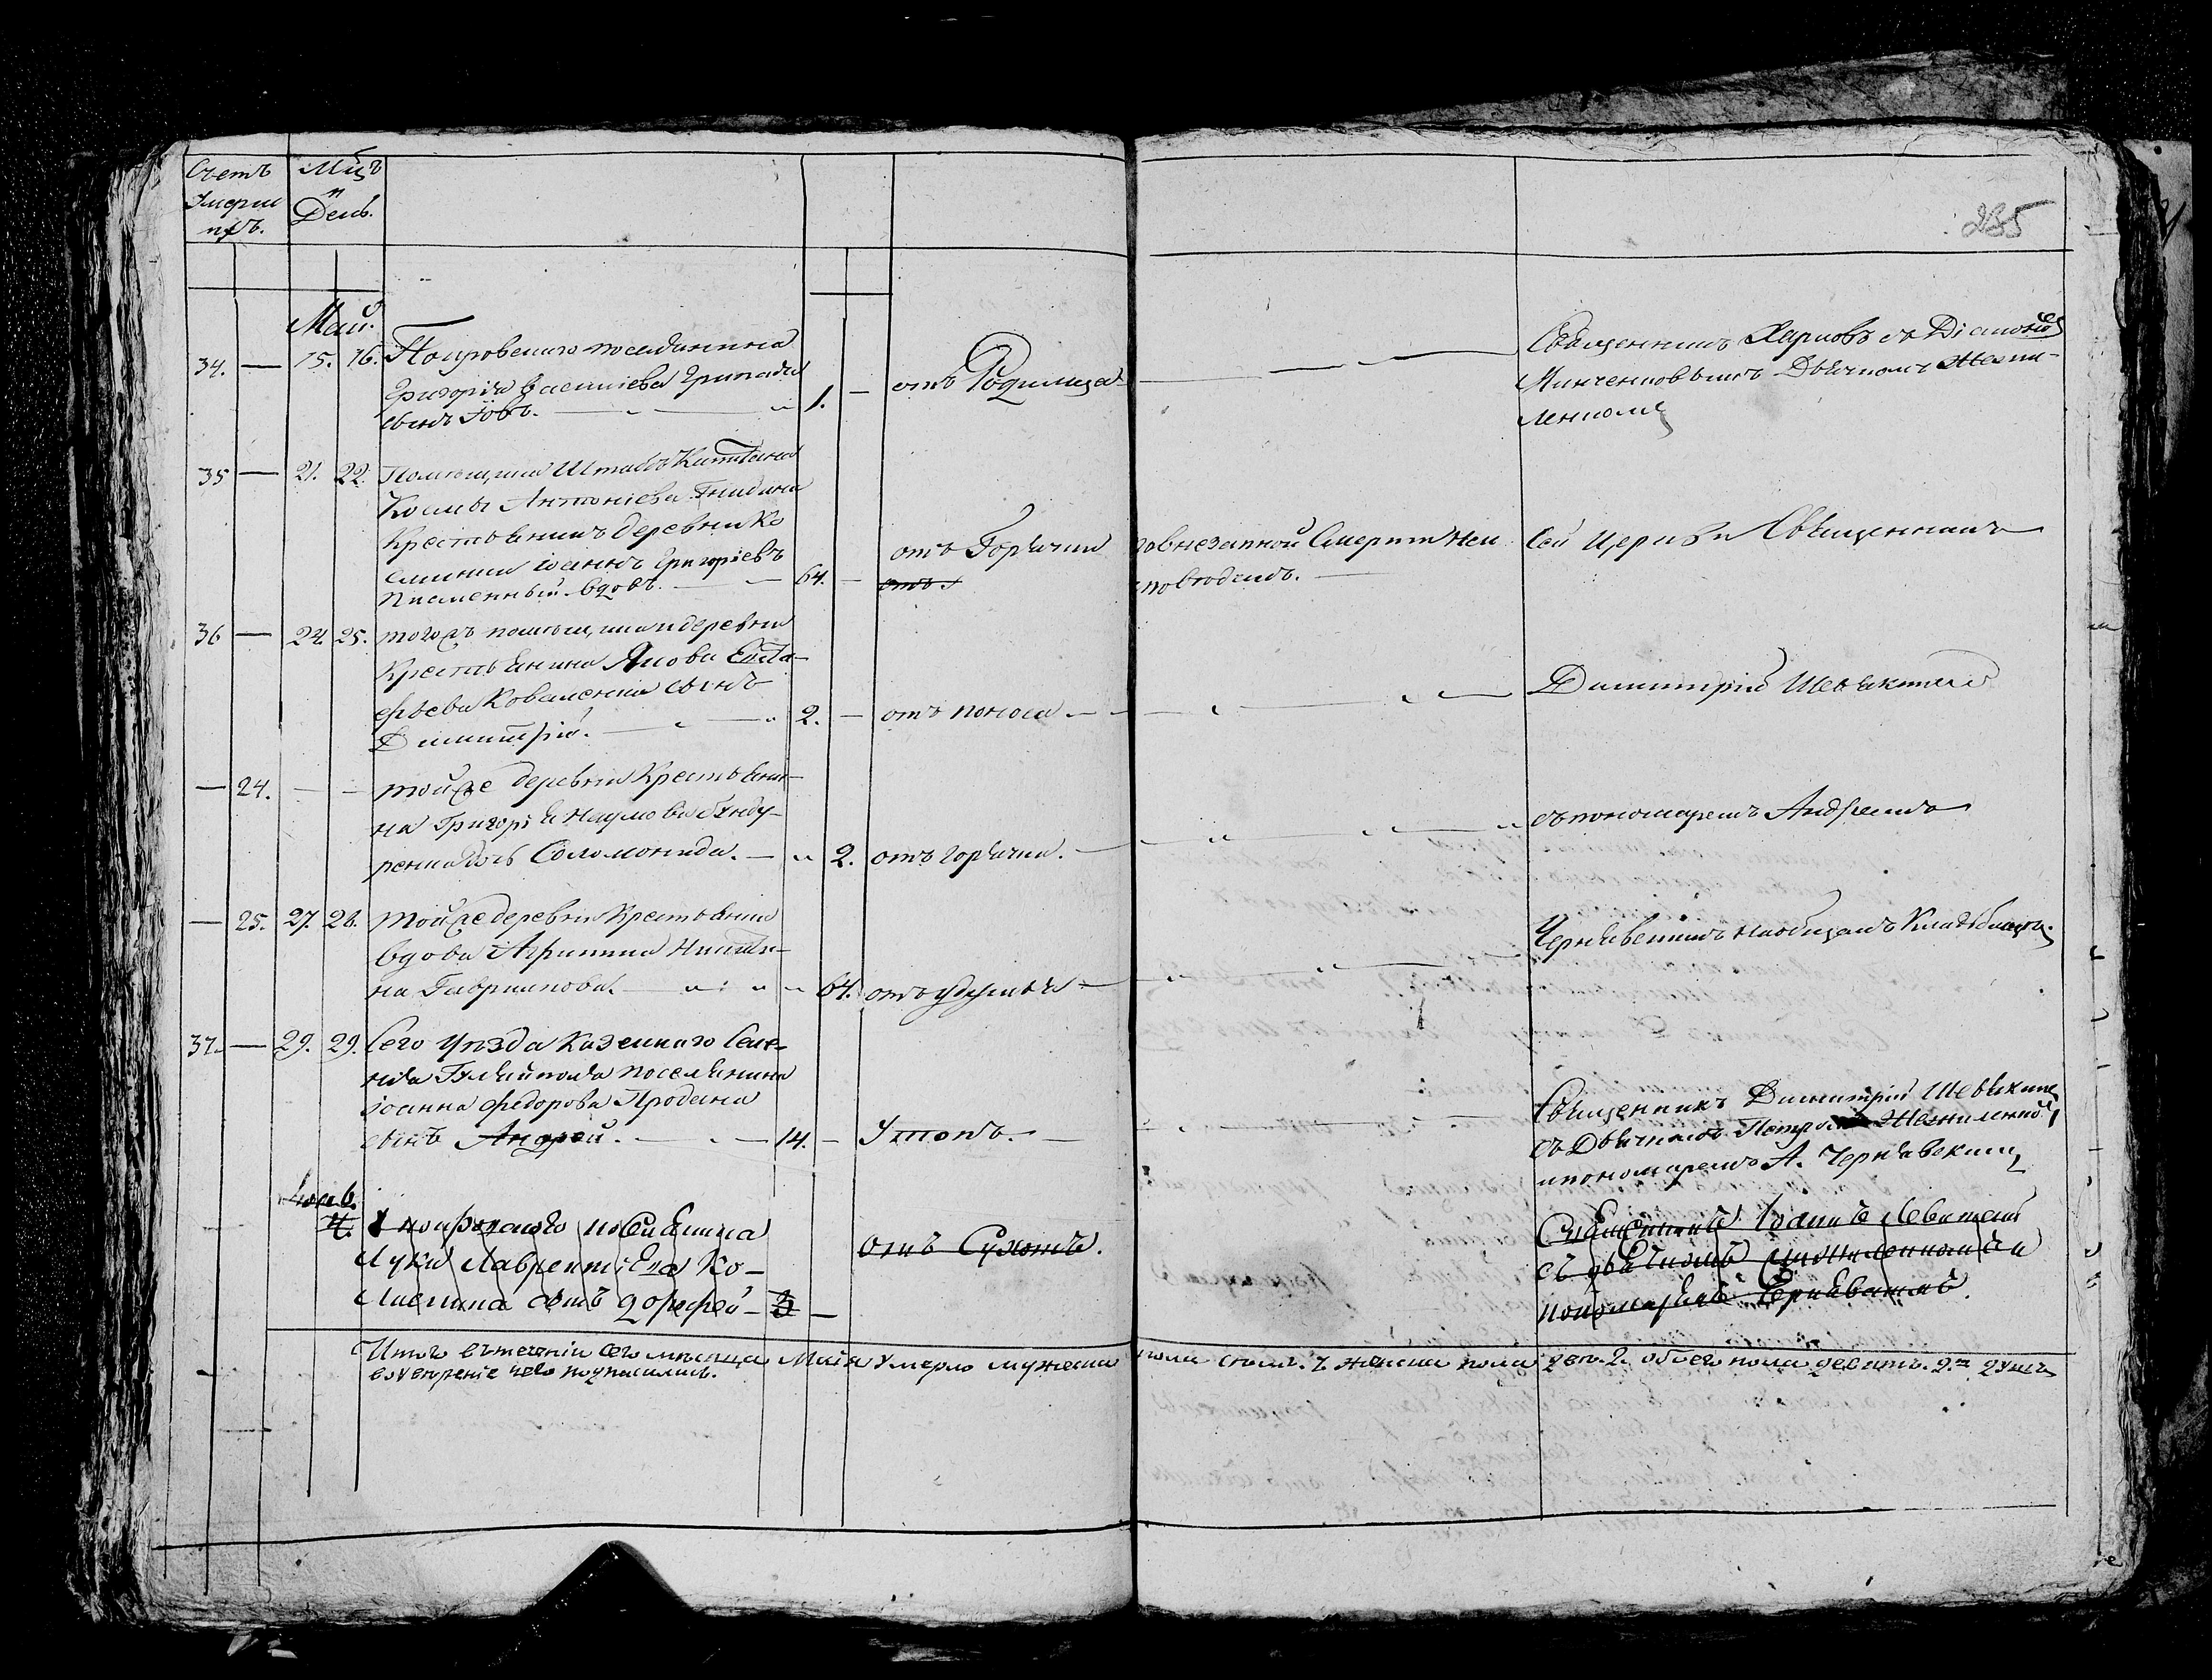 Счетъ
Умерш
ихъ.
Мцъ
и
День.
235
Май.
34. — 15. 16. Покровского поселянина
Григорія Василіева Грипади
сынъ Іовъ. — 1. — отъ Родимца
Священникъ Карповъ съ Діакономъ
Минченковымъ Дьячкомъ Жели-
ленкомъ
35 — 21. 22. Помѣщика Штабсъ Капитана
Космы Антоніева Гнидина
Крестьянинъ деревни Ко
смынки Іоаннъ Григоріевъ
Писменный вдовъ. — 64. — отъ Горячки
отъ
по внезапной Смерти Неи
сповѣданъ. —
Сей Церкви Священникъ
36 — 24. 25. тогожъ помѣщика и деревни
Крестьянина Якова Евста-
фьева Коваленка сынъ
Димитрій. — 2. — отъ поноса —
Димитрій Шевякинъ
— 24. — — тойже деревни Крестьяни-
на Григорія Наумова Бунду-
ренка дочь Соломонида. — 2. отъ горячки.
съ пономаремъ Андреемъ
— 25. 27. 28. тойже деревни Крестьянка
вдова Агрипина Никити-
на Гаврикова. — 64. отъ удушья —
Чернявскимъ на общемъ Кладбищѣ.
37. — 29. 29. Сего Уѣзда Казеннаго Селе-
нія Гуляйполя поселянина
Іоанна Федорова Продана
сынъ Андрей. — 14. — Утопъ. —
Священникъ Димитрій Шевякинъ
съ Дьячкомъ Петромъ Желиленкомъ
и пономаремъ А. Чернявскимъ
4. Покровского поселянина
Луки Лаврентіева Ко-
сынъ Дорофей — 3 —
отъ Сухотъ.
Священникъ Іоаннъ Левитскій
съ дьячкомъ и
пономаремъ Чернявскимъ.
Итого въ теченіи сего мѣсяца Майя Умерло мужеска пола семь. 7 женска пола двѣ. 2. обоего пола девять. 9.ть душъ
во увѣреніе чего подписались.